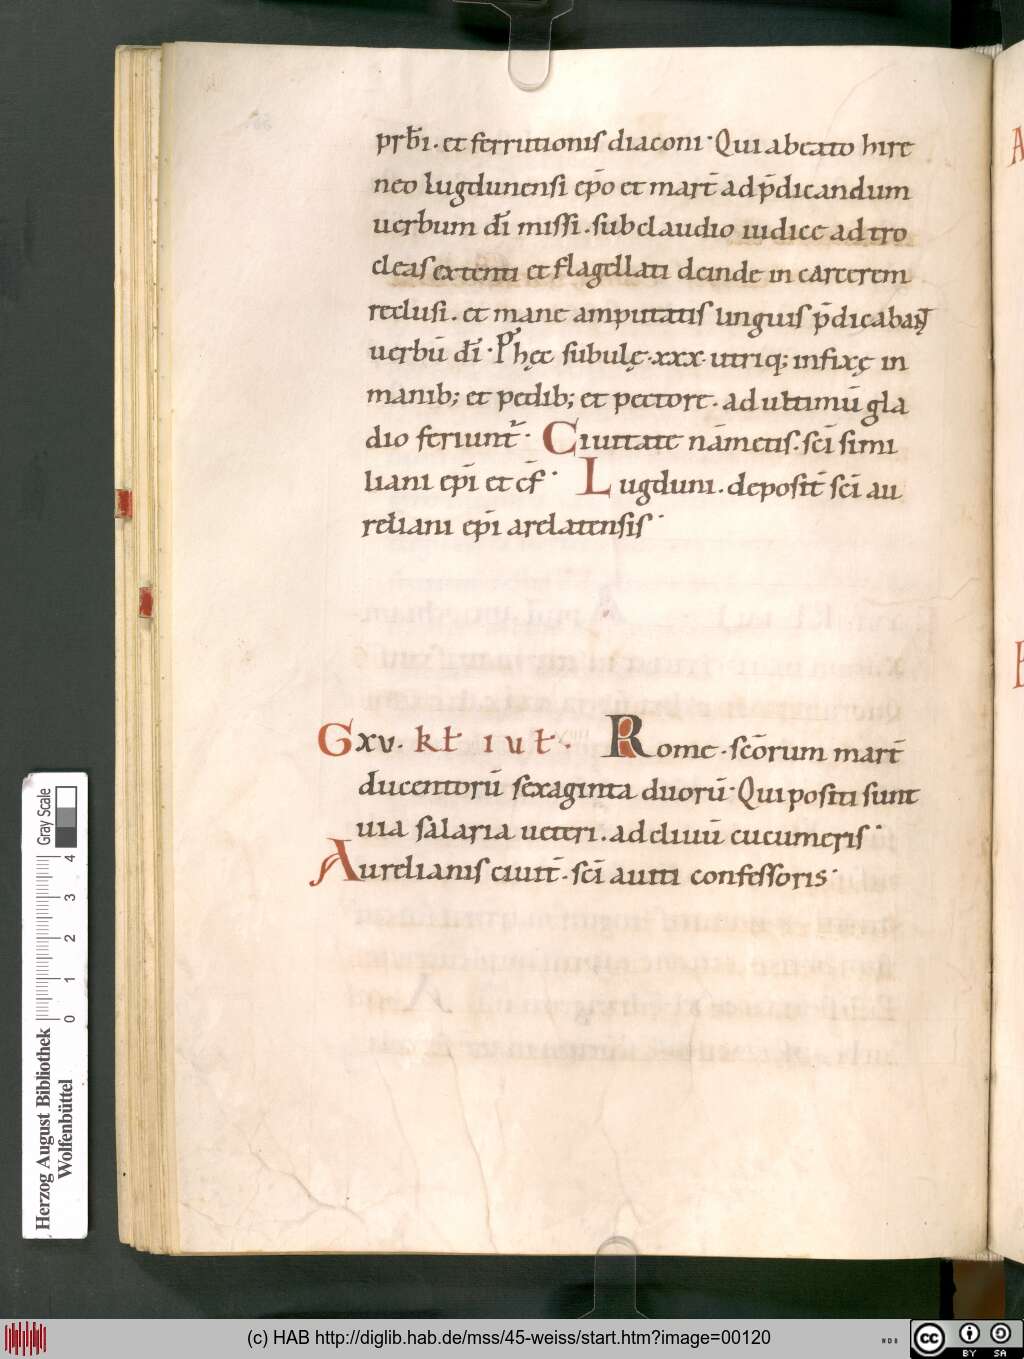 prb̄i. et ferrutionis diaconi· Qui abeato hire
neo lugdunensi ep̄o et mart̄ ad p̄dicandum
uerbum dī missi. sub claudio iudice ad tro
cleas extenti et flagellati deinde in carcerem
reclusi. et mane amputatis linguis p̄dicabant
uerbū dī· P hęc subulę. xxx. utriq; infixę in
manib; et pedib; et pectore. ad ultimū gla
dio feriunt̄· Ciuitate nāmetis. sc̄i simi
liani ep̄i et cf̄· Lugduni. deposit̄ sc̄i au
reliani ep̄i arelatensis·
G xv. kł iuł· Rome. sc̄orum mart̄
ducentorū sexaginta duorū· Qui positi sunt
uia salaria ueteri. ad cliuū cucumeris·
Aurelianis ciuit̄. sc̄i auiti confessoris·
Herzog August Bibliothek
Wolfenbüttel
0 1 2 3 4
Gray Scale
(c) HAB http://diglib.hab.de/mss/45-weiss/start.htm?image=00120
cc BY SA